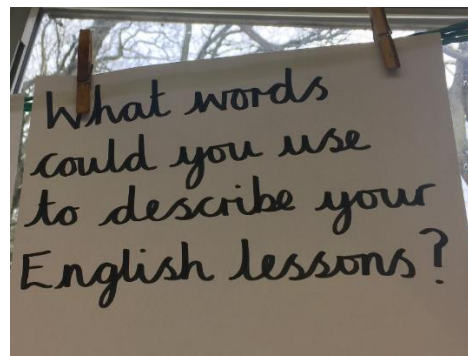 What words
could you use
to describe your
English lessons?